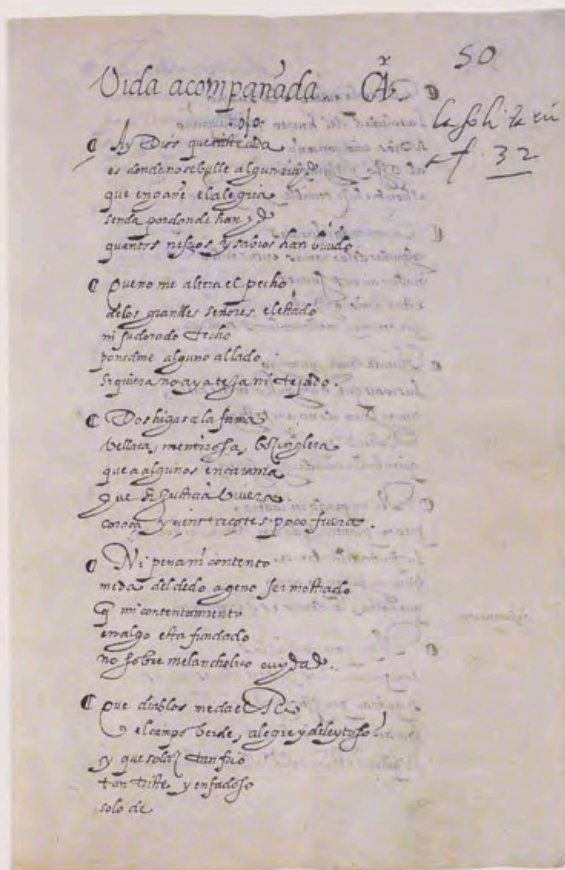 50
Vida acompañada
la solitaria
af. 32
¶ Ay Dios que
es donde no se bulle algun ruydo
que engañe el alegria
senda por donde han ydo
quantos nesçios, y sabios han biuido.
¶ Que no me altera el pecho
delos grandes señores, el estado
ni su dorado techo
ponedme alguno allado
siquiera no aya teja ni tejado.
¶ Dos higas a la fama
vellaca, mentirosa,
que a algunos encarama
que si justicia vuiera
coroça, y açotes poco fuera.
¶ Ni pena ni contento
me da del dedo ageno ser mostrado
q̃ mi contentamiento
en algo esta fundado
no sobre melancholico cuydado.
¶ Que diablos me da el
el campo verde, alegre y deleytoso
y que solaz tan frio
tan triste, y enfadoso
solo de